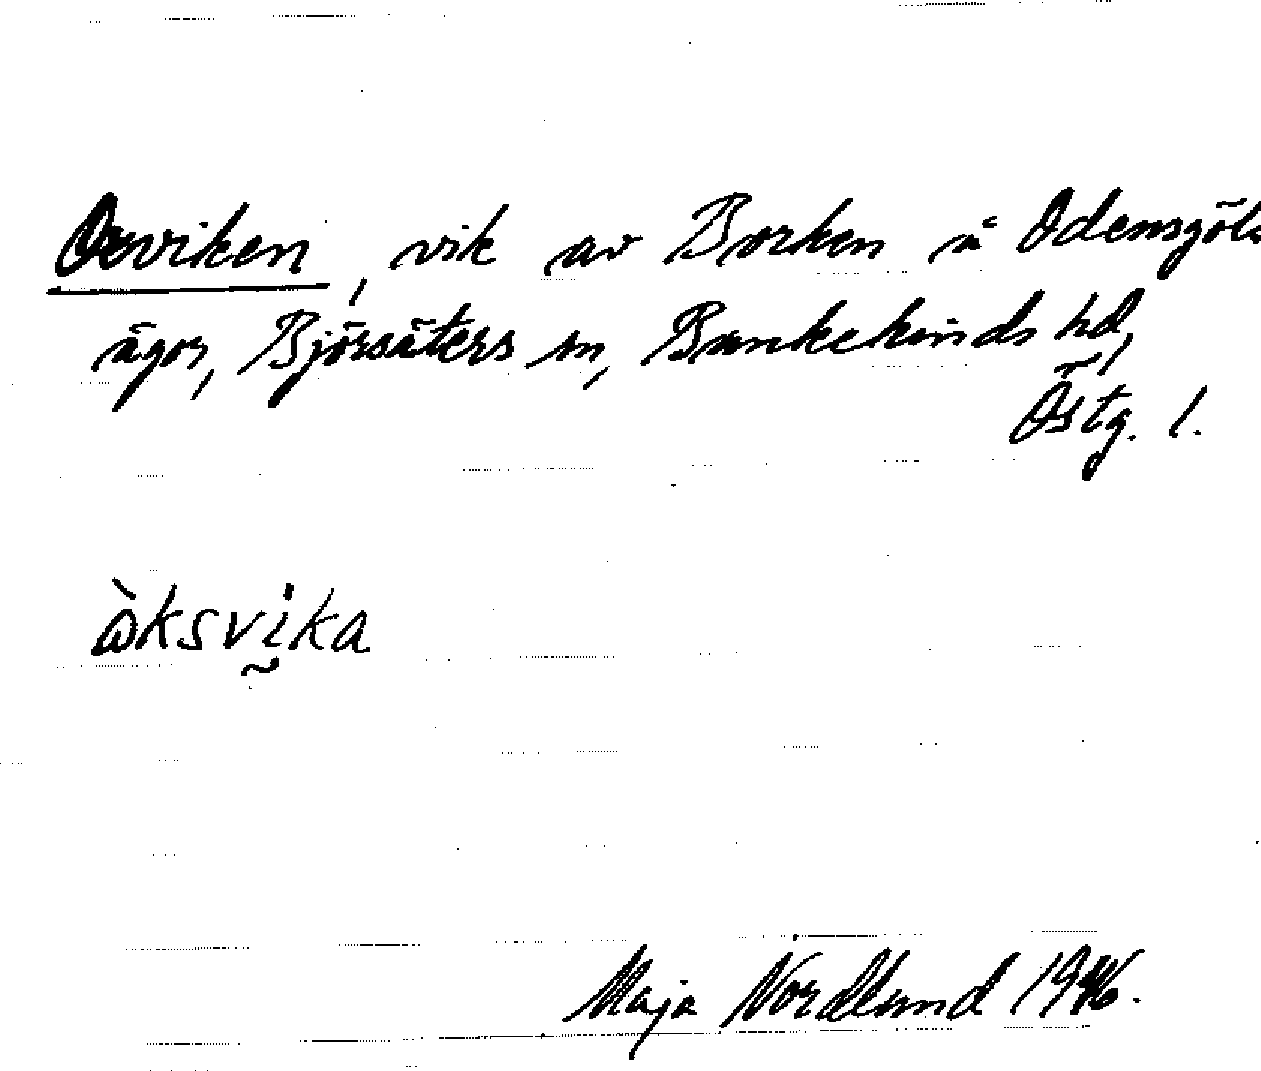 Oxviken, vik av Borken å Odensgöls
ägor, Björsäters sn, Bankekinds hd,
Östg. l.
ὼksvḭka
Maja Nordlund 1946.